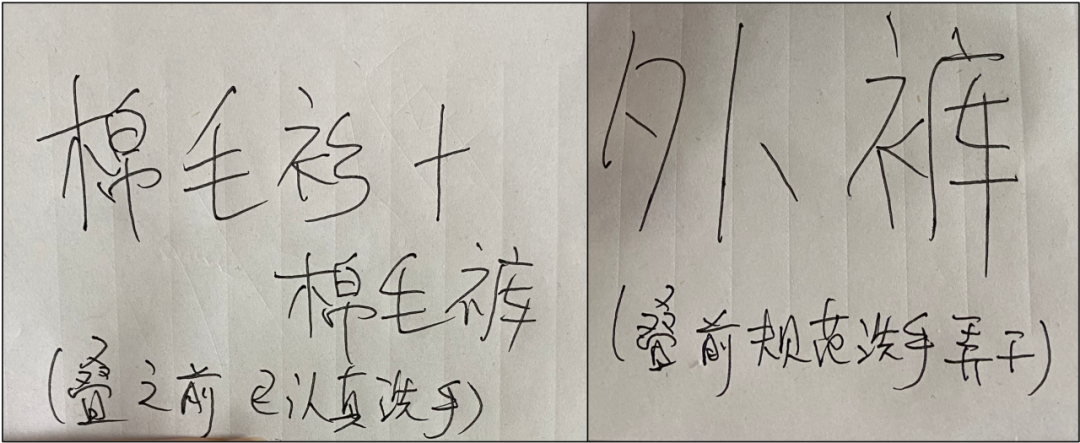 棉毛衫+
棉毛裤
(叠之前已认真洗手)
外裤
(叠前规范洗手弄干)